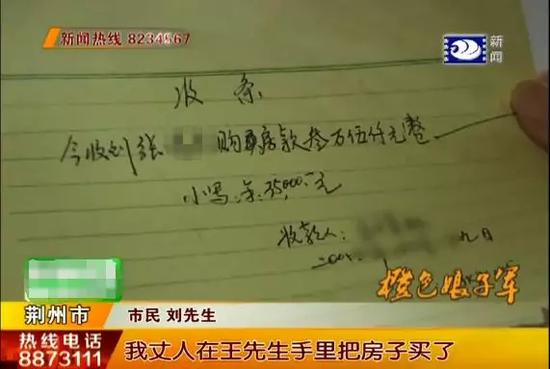 新闻热线 8234567
新闻
收条
今收到张 购房款叁万伍仟元整
小写:¥:35000—元
收款人:
九日
橙色娘子军
荆州市
市民 刘先生
热线电话
8873111
我丈人在王先生手里把房子买了